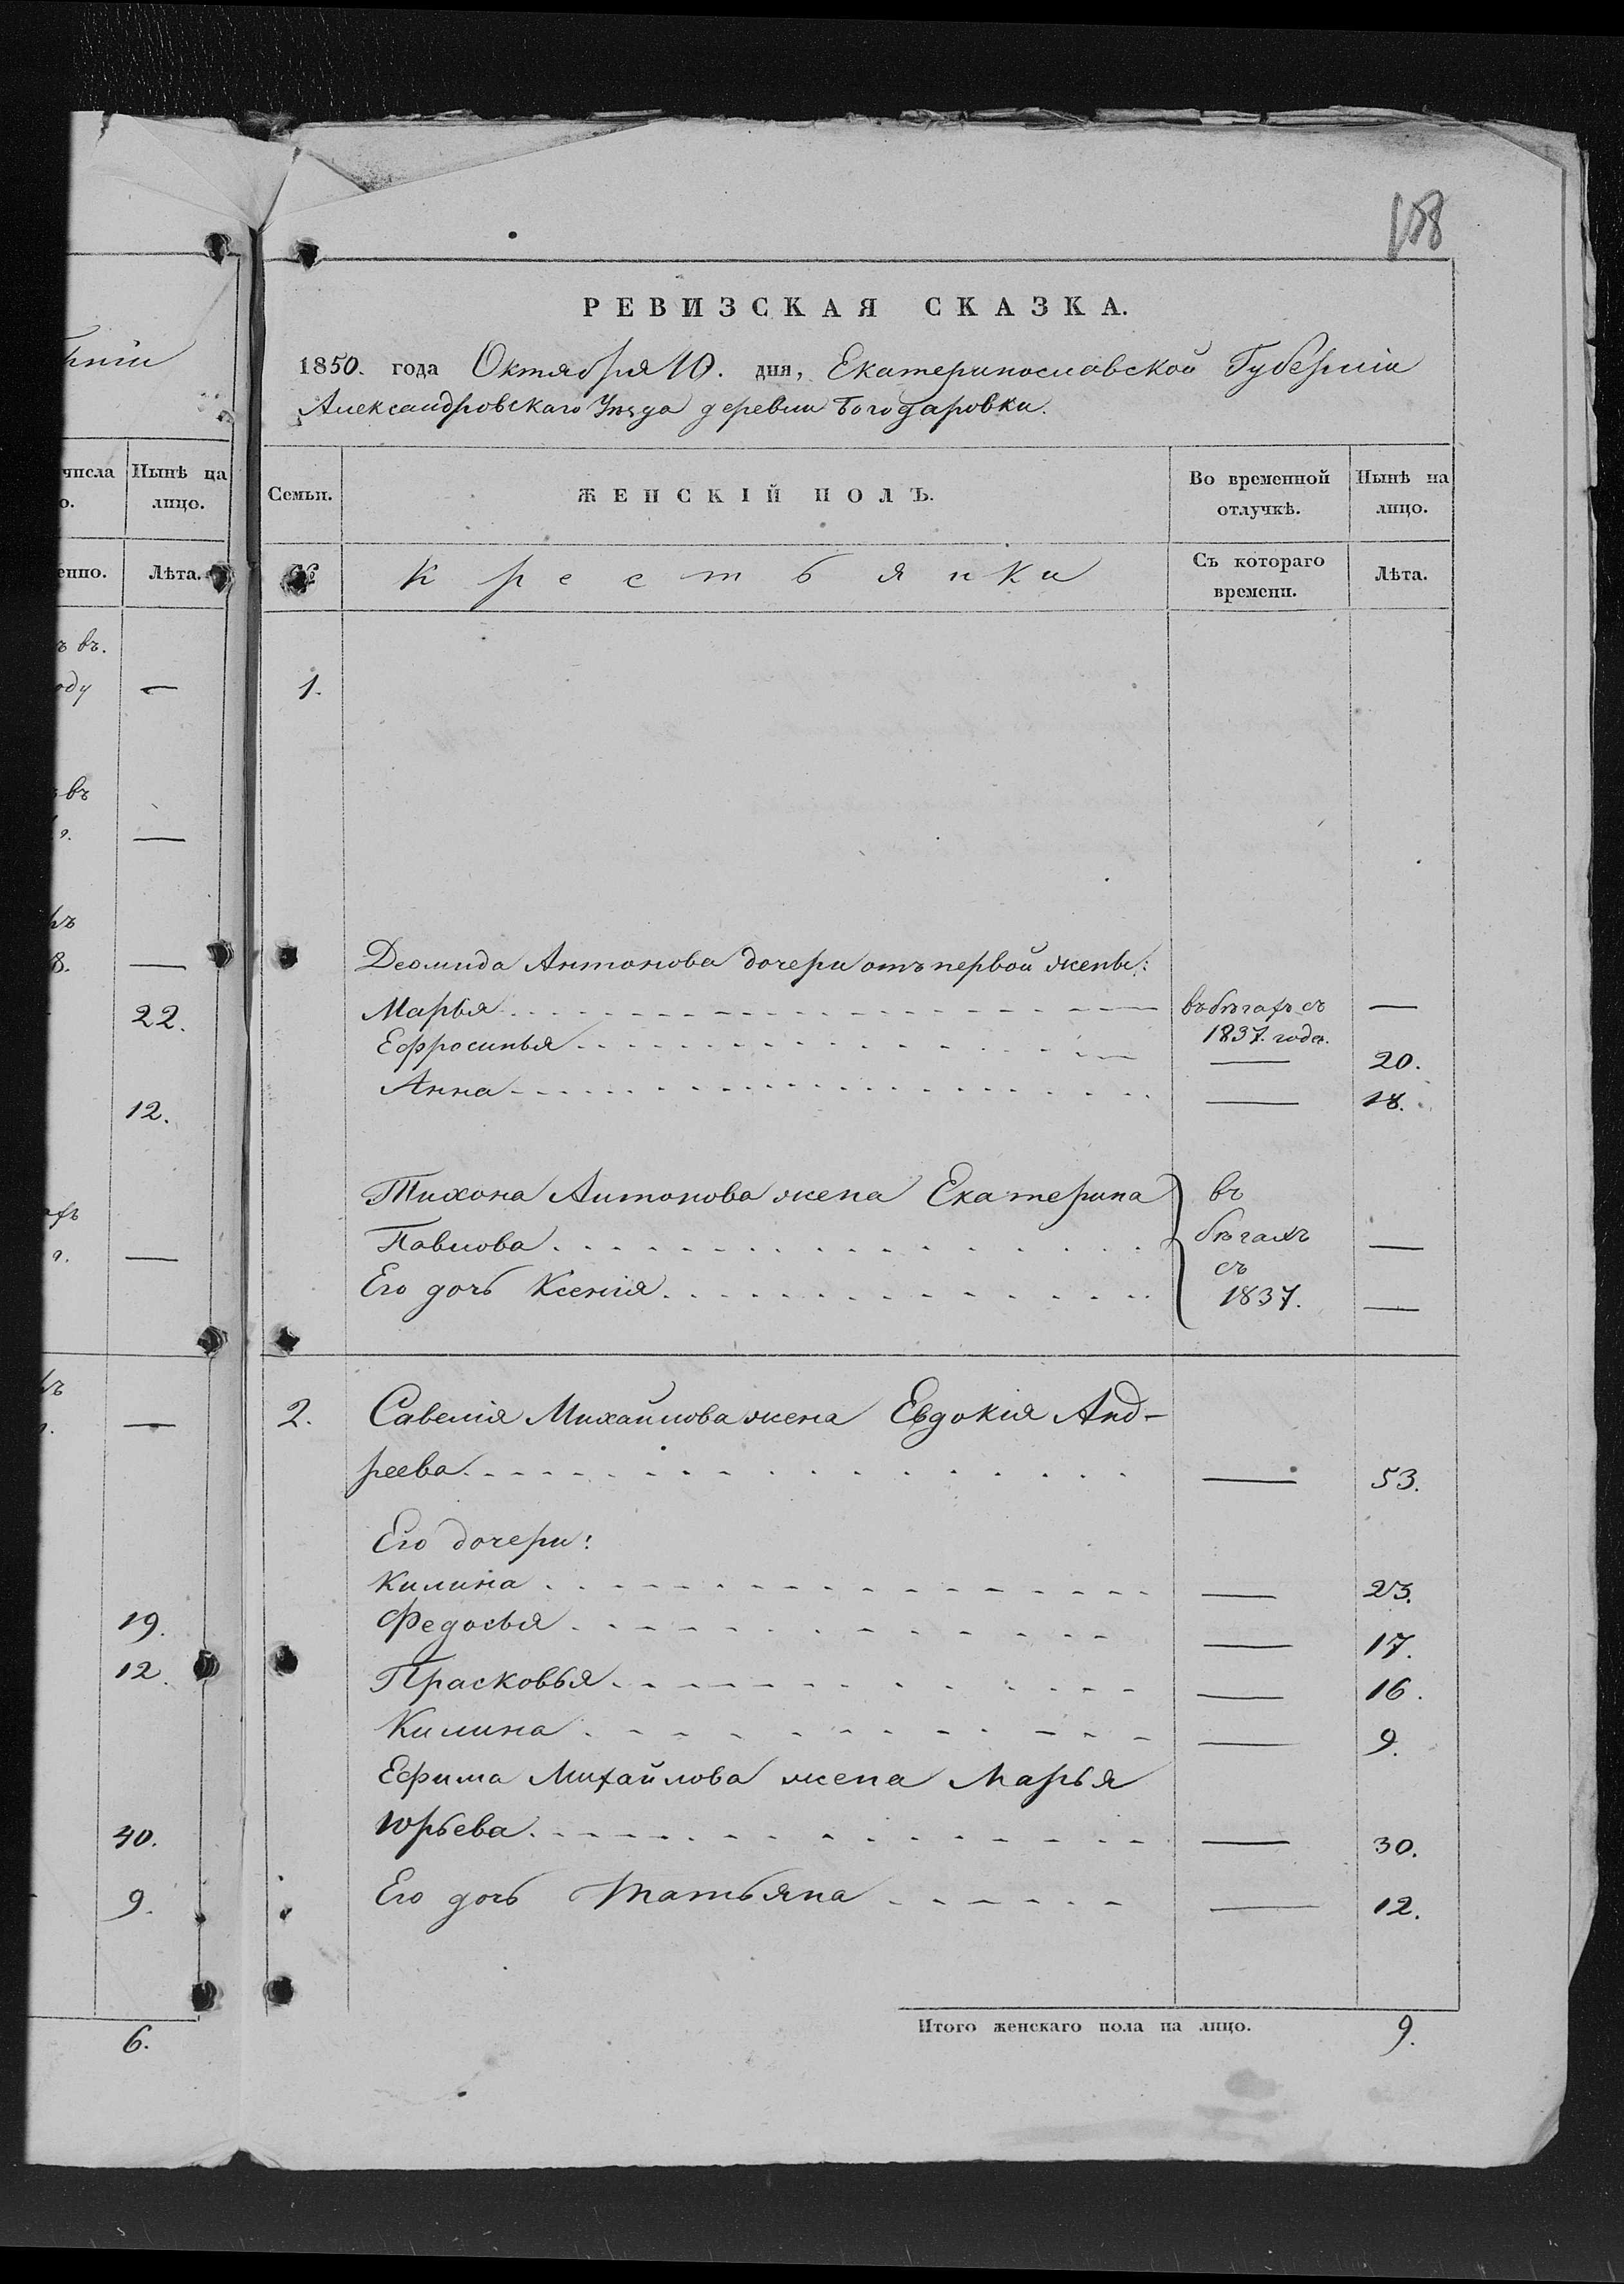 108
РЕВИЗСКАЯ СКАЗКА.
1850. года Октября 10. дня, Екатеринославской Губерніи
Александровскаго Уѣзда деревни Богодаровки.
числа
о.
Нынѣ на
лицо.
енно.
Лѣта.
ъ въ.
оду —
въ
—
8. —
22.
12.
—
—
19.
12.
40.
9.
6.
Семьи.
ЖЕНСКІЙ ПОЛЪ.
Во временной
отлучкѣ.
Нынѣ на
лицо.
№
Крестьянки
Съ котораго
времени.
Лѣта.
1.
Деомида Антонова дочери отъ первой жены:
Марья въ бѣгахъ съ —
1837. года.
Ефросинья — 20.
Анна — 18.
Тихона Антонова жена Екатерина въ
Павлова бѣгахъ —
съ
Его дочь Ксенія 1837. —
2. Савелія Михайлова жена Евдокія Анд-
реева — 53.
Его дочери:
Килина — 23.
Федосья — 17.
Прасковья — 16.
Килина — 9.
Ефима Михайлова жена Марья
Юрьева — 30.
Его дочь Татьяна — 12.
Итого женскаго пола на лицо. 9.